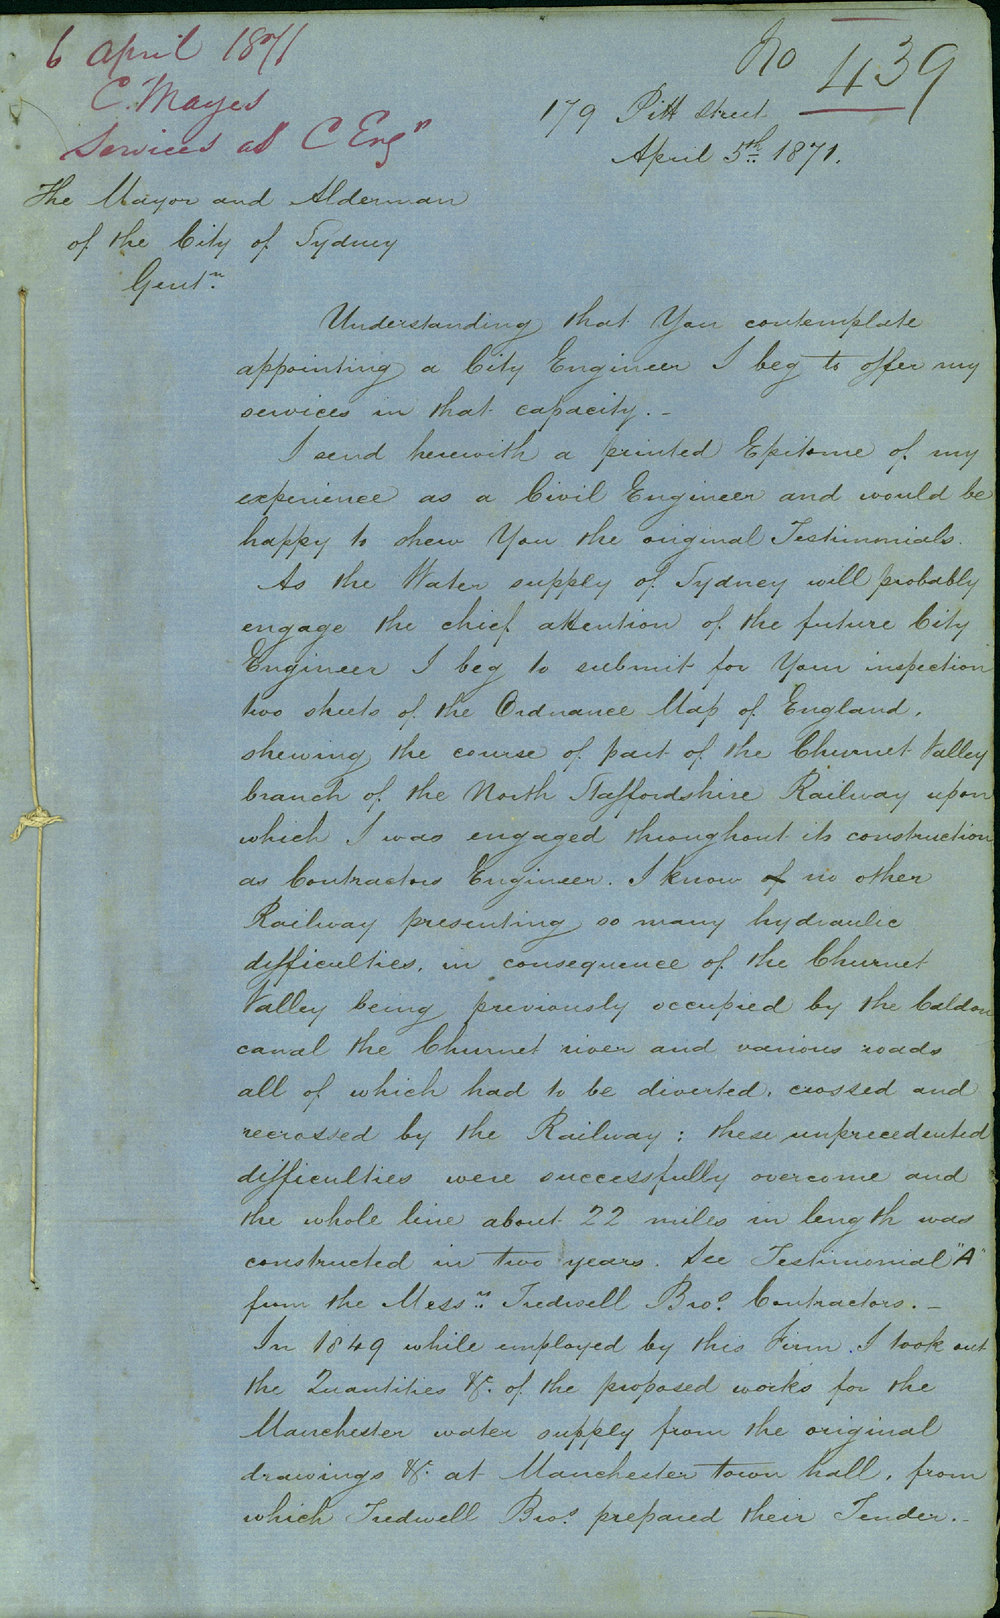 6 April 1871
C. Mayes
Services as C Engr
No 439
179 Pitt Street
April 5th 1871.
The Mayor and Alderman
of the City of Sydney
Gentn.
Understanding that You contemplate
appointing a City Engineer I beg to offer my
services in that capacity. –
I send herewith a printed Epitome of my
experience as a Civil Engineer and would be
happy to shew You the original Testimonials.
As the Water supply of Sydney will probably
engage the chief attention of the future City
Engineer I beg to submit for Your inspection
two sheets of the Ordnance Map of England,
shewing the course of part of the Churnet Valley
branch of the North Staffordshire Railway upon
which I was engaged throughout its construction
as Contractors Engineer. I know of no other
Railway presenting so many hydraulic
difficulties, in consequence of the Churnet
Valley being previously occupied by the Caldon
canal the Churnet river and various roads
all of which had to be diverted, crossed and
recrossed by the Railway; these unprecedented
difficulties were successfully overcome and
the whole line about 22 miles in length was
constructed in two years. See Testimonial "A"
from the Messrs. Tredwell Bros. Contractors. –
In 1849 while employed by this Firm, I took out
the Quantities &c. of the proposed works for the
Manchester water supply from the original
drawings &c. at Manchester town hall, from
which Tredwell Bros. prepared their Tender. –